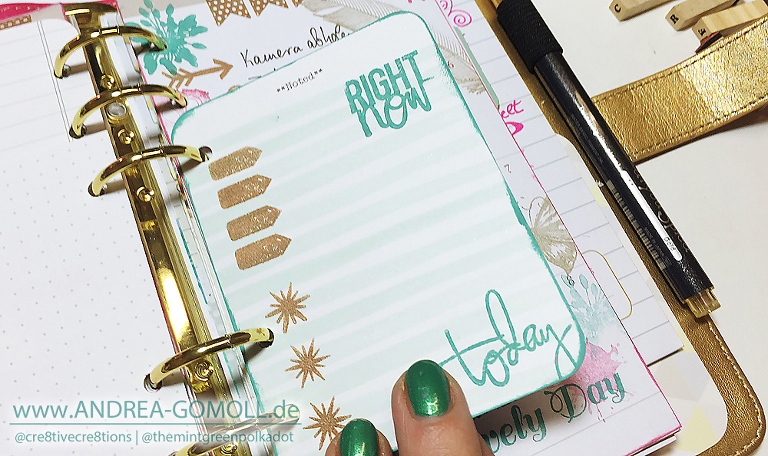 Kamera abhole
**Noted**
RIGHT
NOW
ket
7
6
today
vely Day
www.ANDREA-GOMOLL.de
@cre8tivecre8tions | @themintgreenpolkadot